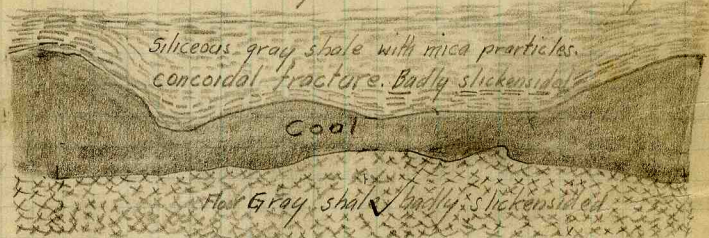 Siliceous gray shale with mica prarticles.
concoidal fracture. Badly slickensided
Coal
Gray shale badly slickensided